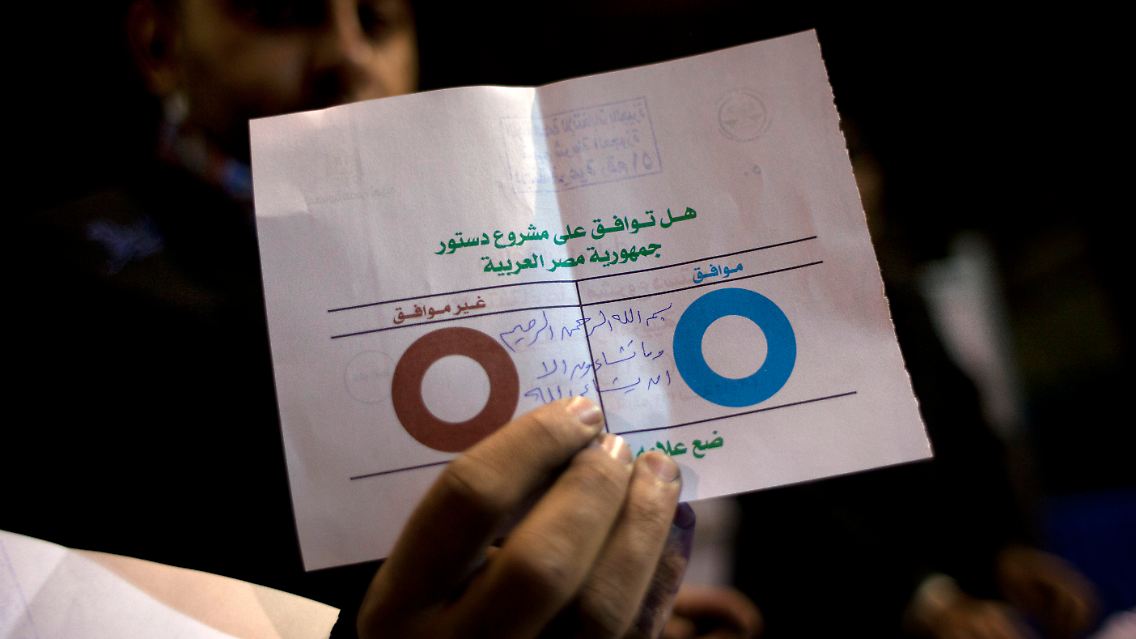 هل توافق على مشروع دستور
جمهورية مصر العربية
موافق
غير موافق
بسم الله الرحمن الرحيم
وما تشاءون الا
ان يشاء الله
ضع علامة